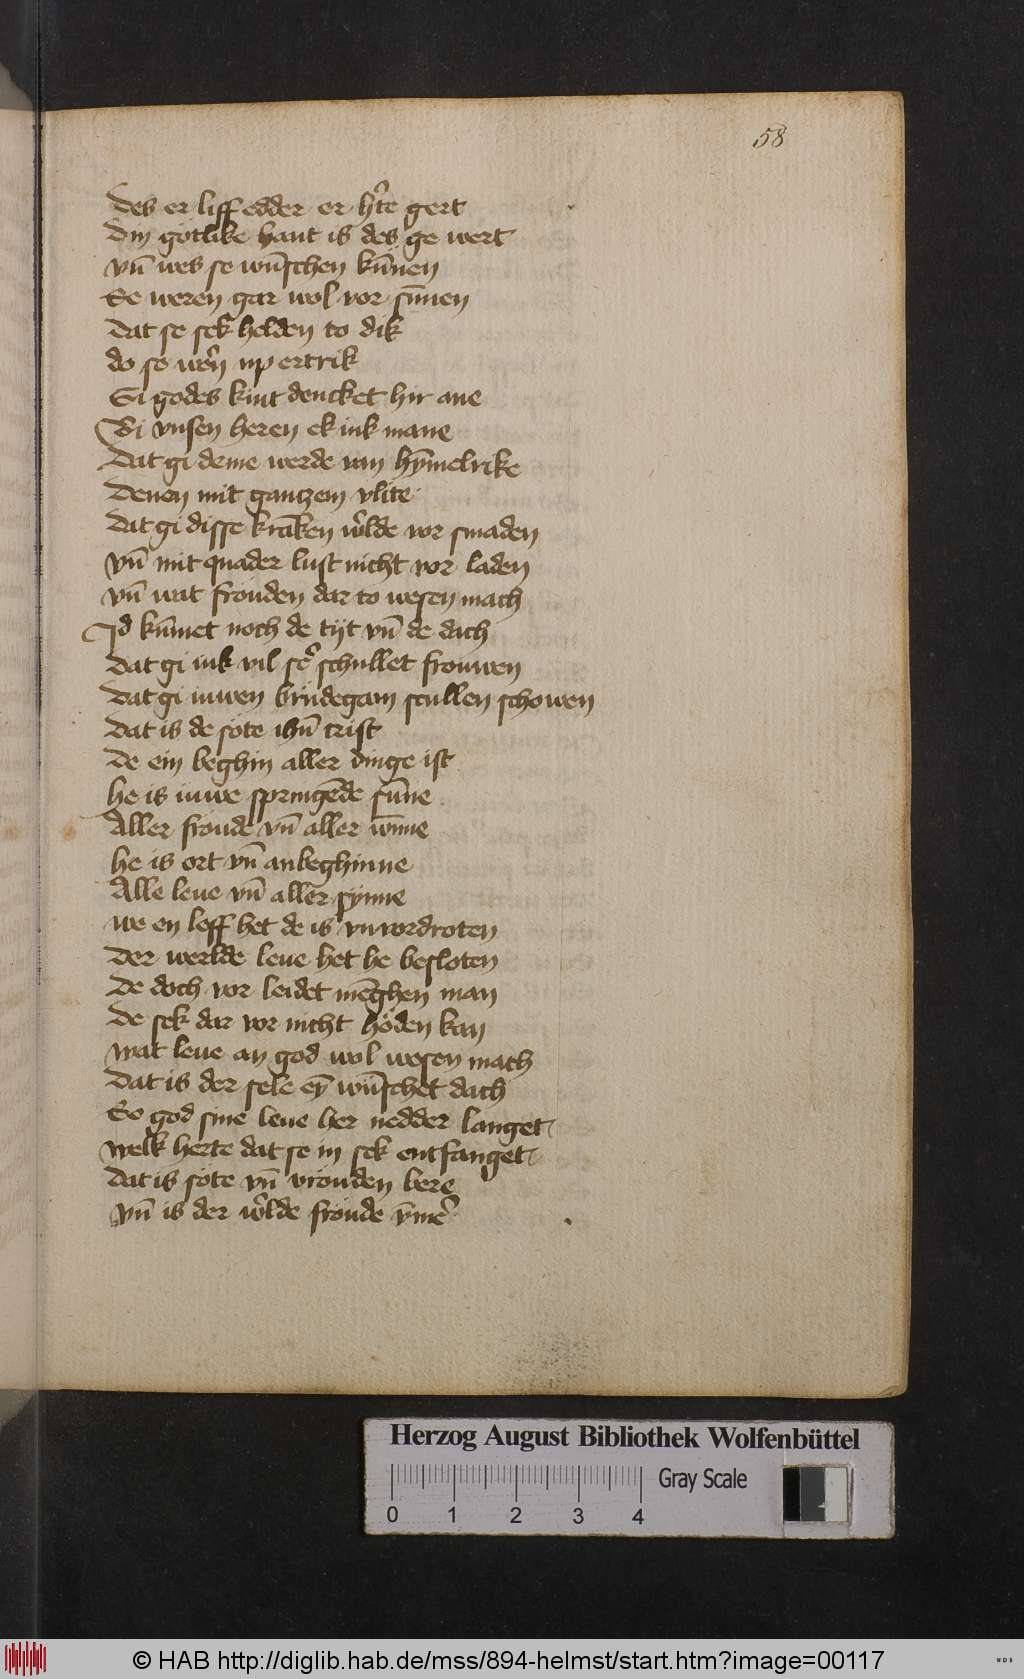 58
Des er liff edder er h'te gert
Din gotlike hant is des ge wert
vn̄ wes se wūschen kūnen
Se weren gar wol vor sūnen
Dat se sek helden to dik
do se wer̄n up ertrik
Gi godes kint dencket hir ane
Bi vnsen heren ek iuk mane
Dat gi deme werde van hȳmelrike
Denen mit gantzem vlite
Dat gi disse krāken w'lde vor smaden
vn̄ mit quader lust nicht vor laden
vn̄ wat frouden dar to wesen mach
Id kūmet noch de tijt vn̄ de dach
Dat gi iuk vil se' schullet frouwen
Dat gi iuwen brudegam scullen schowen
Dat is de sote ihū crist
De ein beghin aller dinge ist
he is iuwe springēde sūne
Aller froude vn̄ aller wn̄ne
he is ort vn̄ anbeghinne
Alle leue vn̄ aller synne
we en leff het de is vnvordroten
Der werlde leue het he besloten
De doch vor leidet mēghen man
De sek dar vor nicht höden kan
wat leue an god wol wesen mach
Dat is der sele eȳ wūschet dach
So god sine leue her nedder langet
welk herte dat se in sek entfanget
Dat is sote vn̄ vrouden bere
vn̄ is der w'lde froude ȳme'
Herzog August Bibliothek Wolfenbüttel
Gray Scale
0 1 2 3 4
© HAB http://diglib.hab.de/mss/894-helmst/start.htm?image=00117